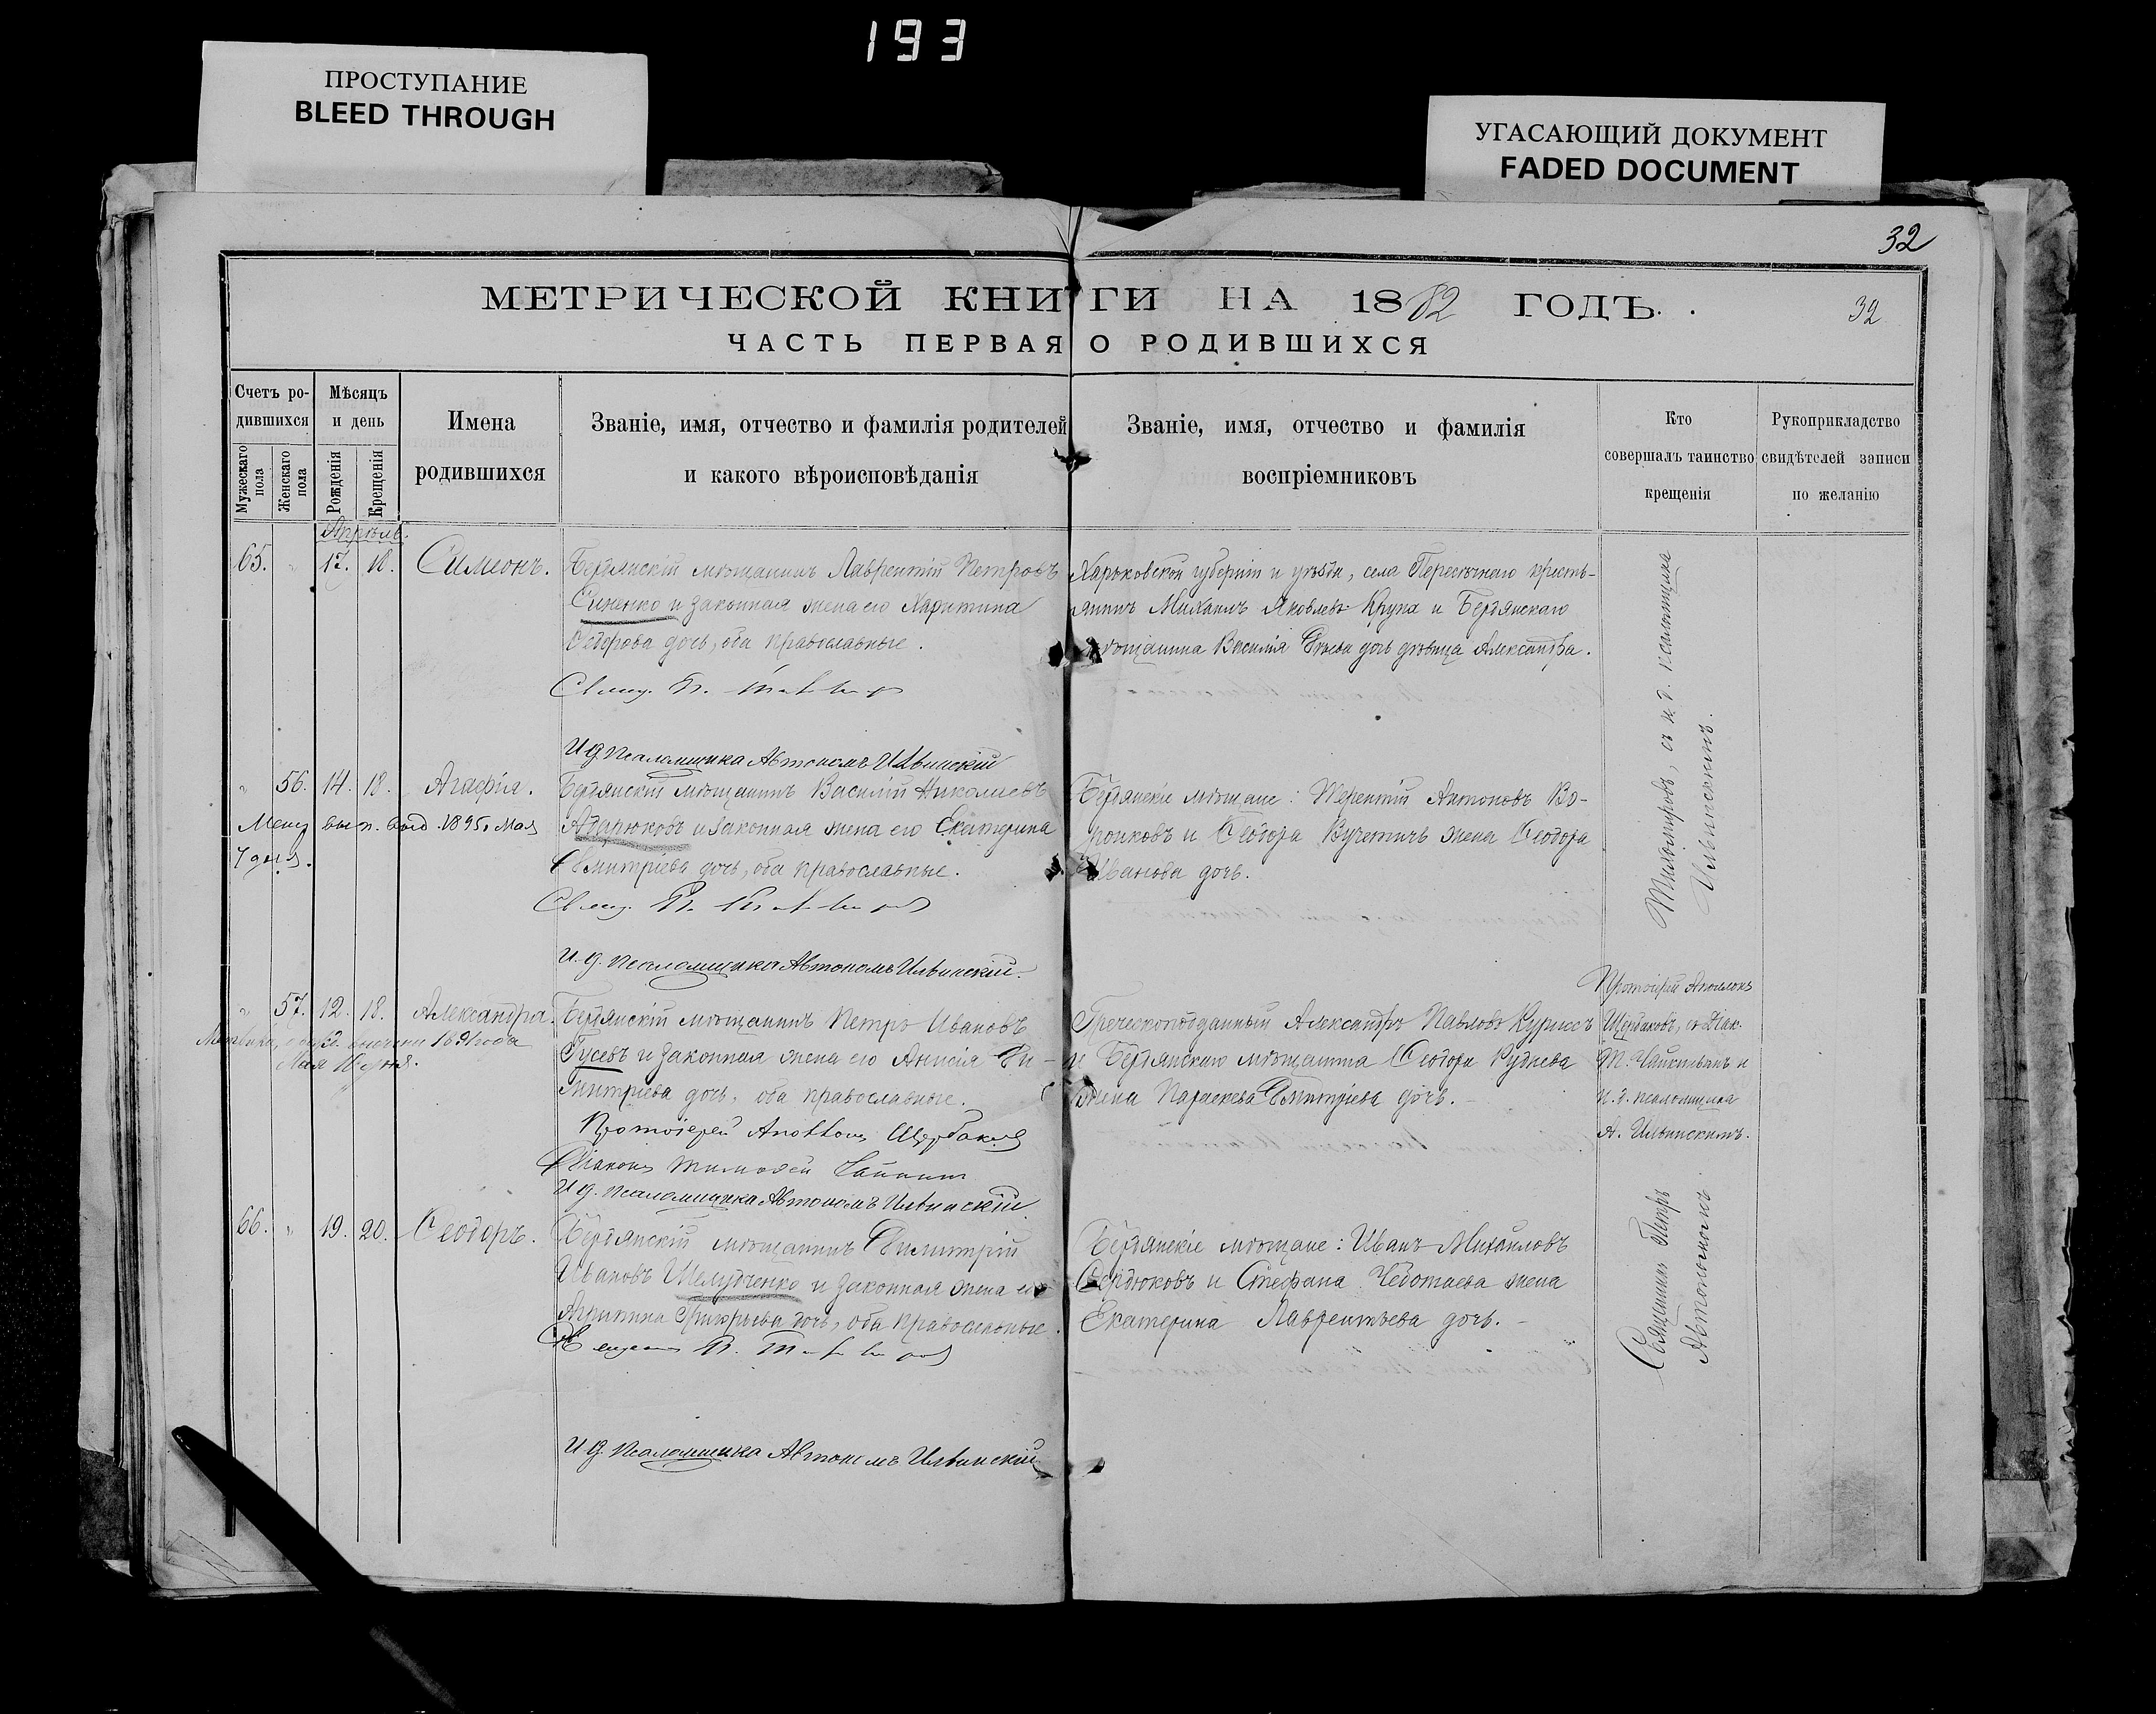 193
ПРОСТУПАНИЕ
BLEED THROUGH
УГАСАЮЩИЙ ДОКУМЕНТ
FADED DOCUMENT
32
МЕТРИЧЕСКОЙ КНИГИ НА 1882 ГОДЪ.
32
ЧАСТЬ ПЕРВАЯ О РОДИВШИХСЯ
Счетъ ро-
дившихся
Мужескаго пола
Женскаго пола
Мѣсяцъ
и день
Рожденія
Крещенія
Имена
родившихся
Званіе, имя, отчество и фамилія родителей
и какого вѣроисповѣданія
Званіе, имя, отчество и фамилія
воспріемниковъ
Кто
совершалъ таинство
крещенія
Рукоприкладство
свидѣтелей записи
по желанію
Апрѣль.
65. " 17. 18. Симеонъ.
Бердянскій мѣщанинъ Лаврентій Петровъ
Синенко и законная жена его Харитина
Ѳеодорова дочь, оба православные.
Харьковской губерніи и уѣзда, села Пересѣчнаго кресть-
янинъ Михаилъ Яковлевъ Крупа и Бердянскаго
мѣщанина Василія дочь дѣвица Александра.
Свящ. П.
И д. псаломщика Автономъ Ильинскій
съ и. д. псаломщика
Ильинскимъ.
" 56. 14. 18. Агафія.
Метр. вып. выд. 1895 г. Мая
7 дня.
Бердянскій мѣщанинъ Василій Николаевъ
Адарюковъ и законная жена его Екатерина
Димитріева дочь, оба православные.
Бердянскіе мѣщане: Терентій Антоновъ Во-
ронковъ и Ѳеодора Вучетичъ жена Ѳеодора
Иванова дочь.
Свящ. П.
И. д. псаломщика Автономъ Ильинскій.
" 57. 12. 18. Александра.
1891 года
Мая 16 дня.
Бердянскій мѣщанинъ Петръ Ивановъ
Гусевъ и законная жена его Анисія Ди-
митріева дочь, оба православные.
Греческоподданный Александръ Павловъ Курисъ
и Бердянскаго мѣщанина Ѳеодора Руднева
жена Параскева Димитріева дочь.
Протоіерей Аполлонъ
Щербаковъ, съ Діак.
и
и. д. псаломщика
А. Ильинскимъ.
Протоіерей Аполлонъ Щербаковъ
Діаконъ Тимоѳей
И д. псаломщика Автономъ Ильинскій
66. " 19. 20. Ѳеодоръ.
Бердянскій мѣщанинъ Димитрій
Ивановъ Шелудченко и законная жена его
Агрипина Григорьева дочь, оба православные.
Бердянскіе мѣщане: Иванъ Михайловъ
Сердюковъ и Стефана Чеботаева жена
Екатерина Лаврентьева дочь.
Священникъ Петръ
Священникъ П.
И д. псаломщика Автономъ Ильинскій